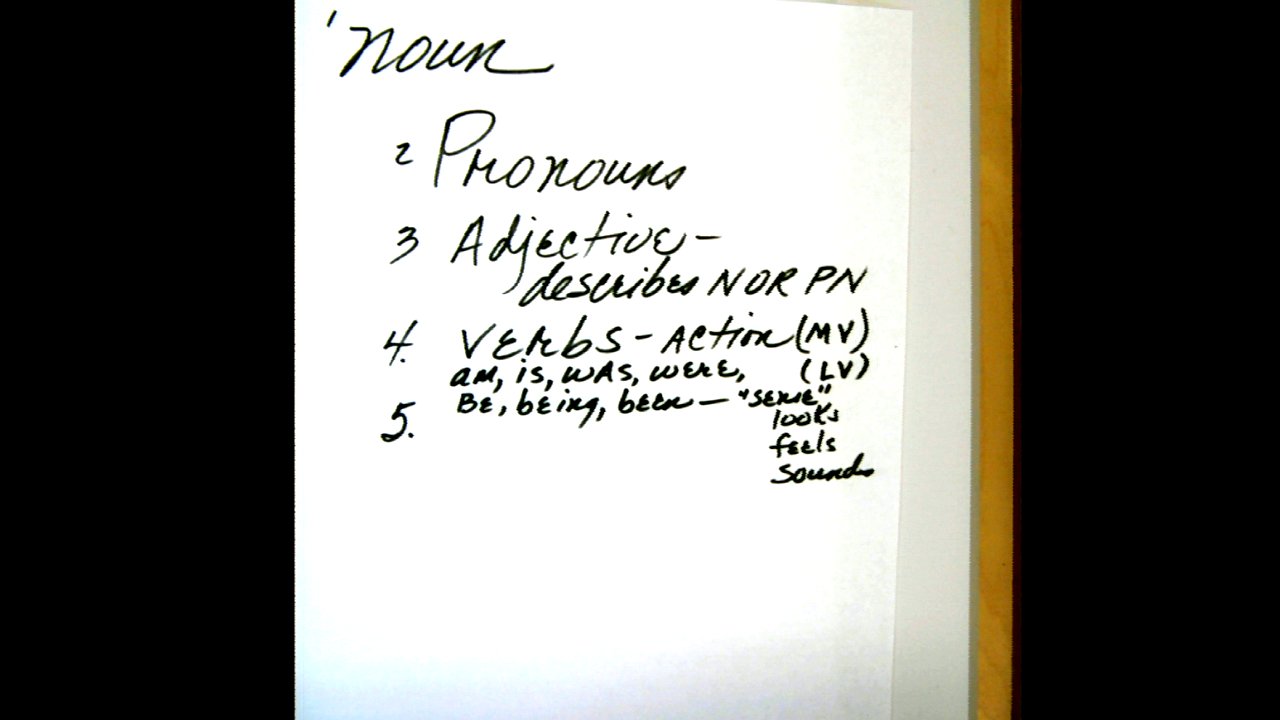 1 noun
2 Pronouns
3 Adjective -
describes N OR PN
4. VERbS - ACtion (MV)
am, is, WAS, WERE, (LV)
BE, bEing, been - "SENSE"
5. looks
feels
Sounds